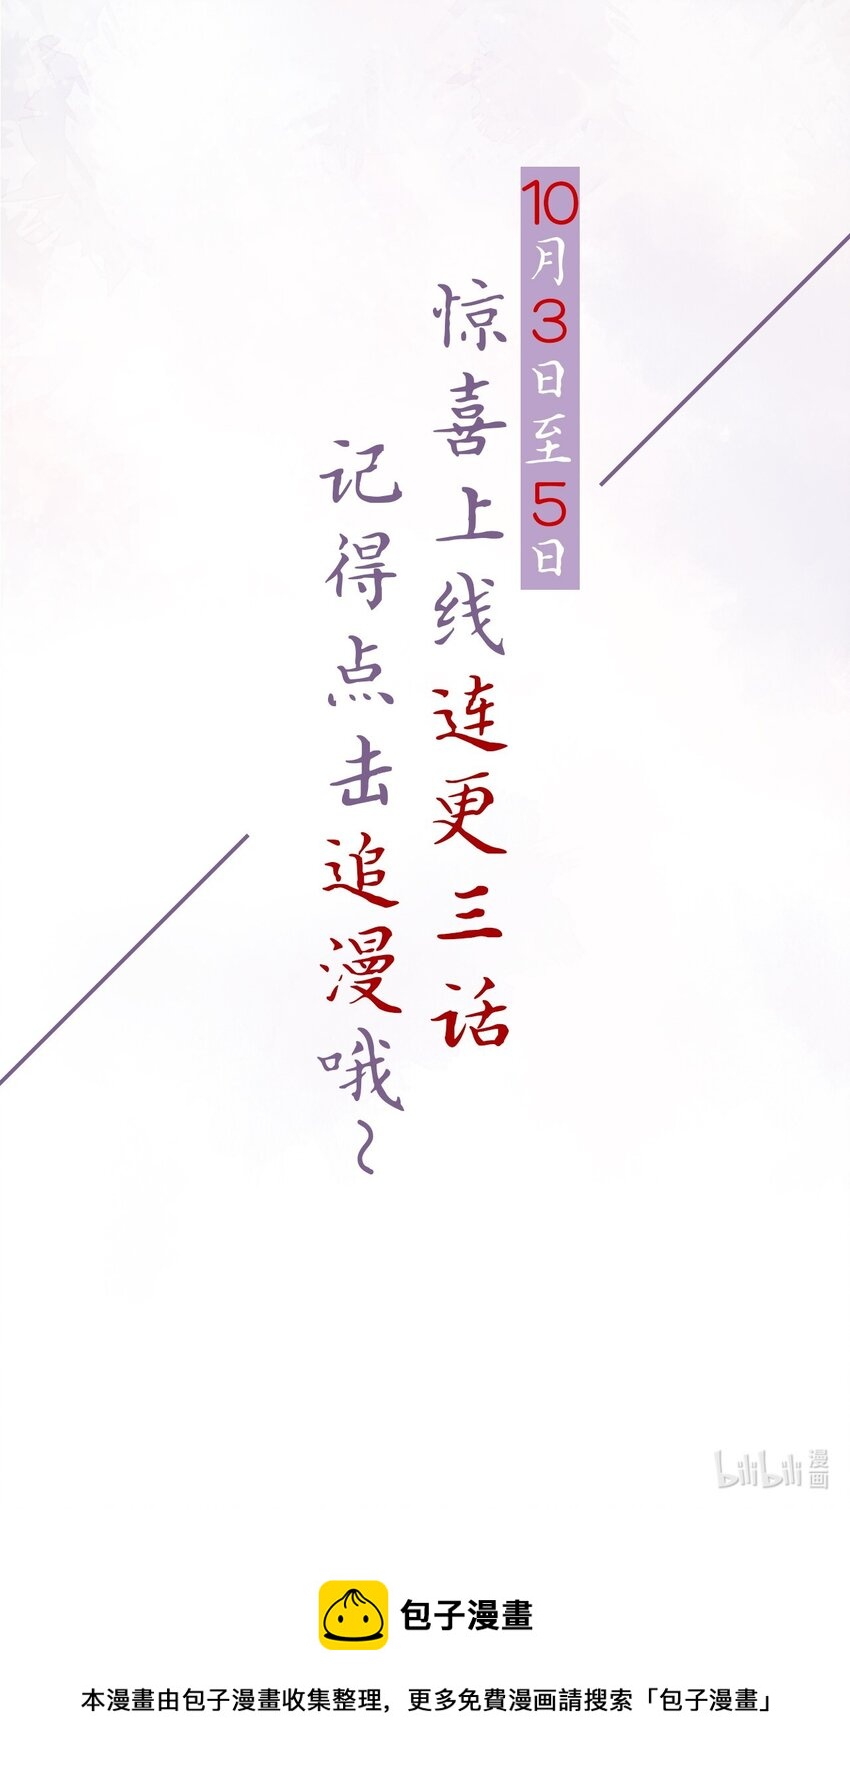 10月3日至5日
惊喜上线连更三话
记得点击追漫哦~
bilibili 漫画
包子漫畫
本漫畫由包子漫畫收集整理，更多免費漫画請搜索「包子漫畫」